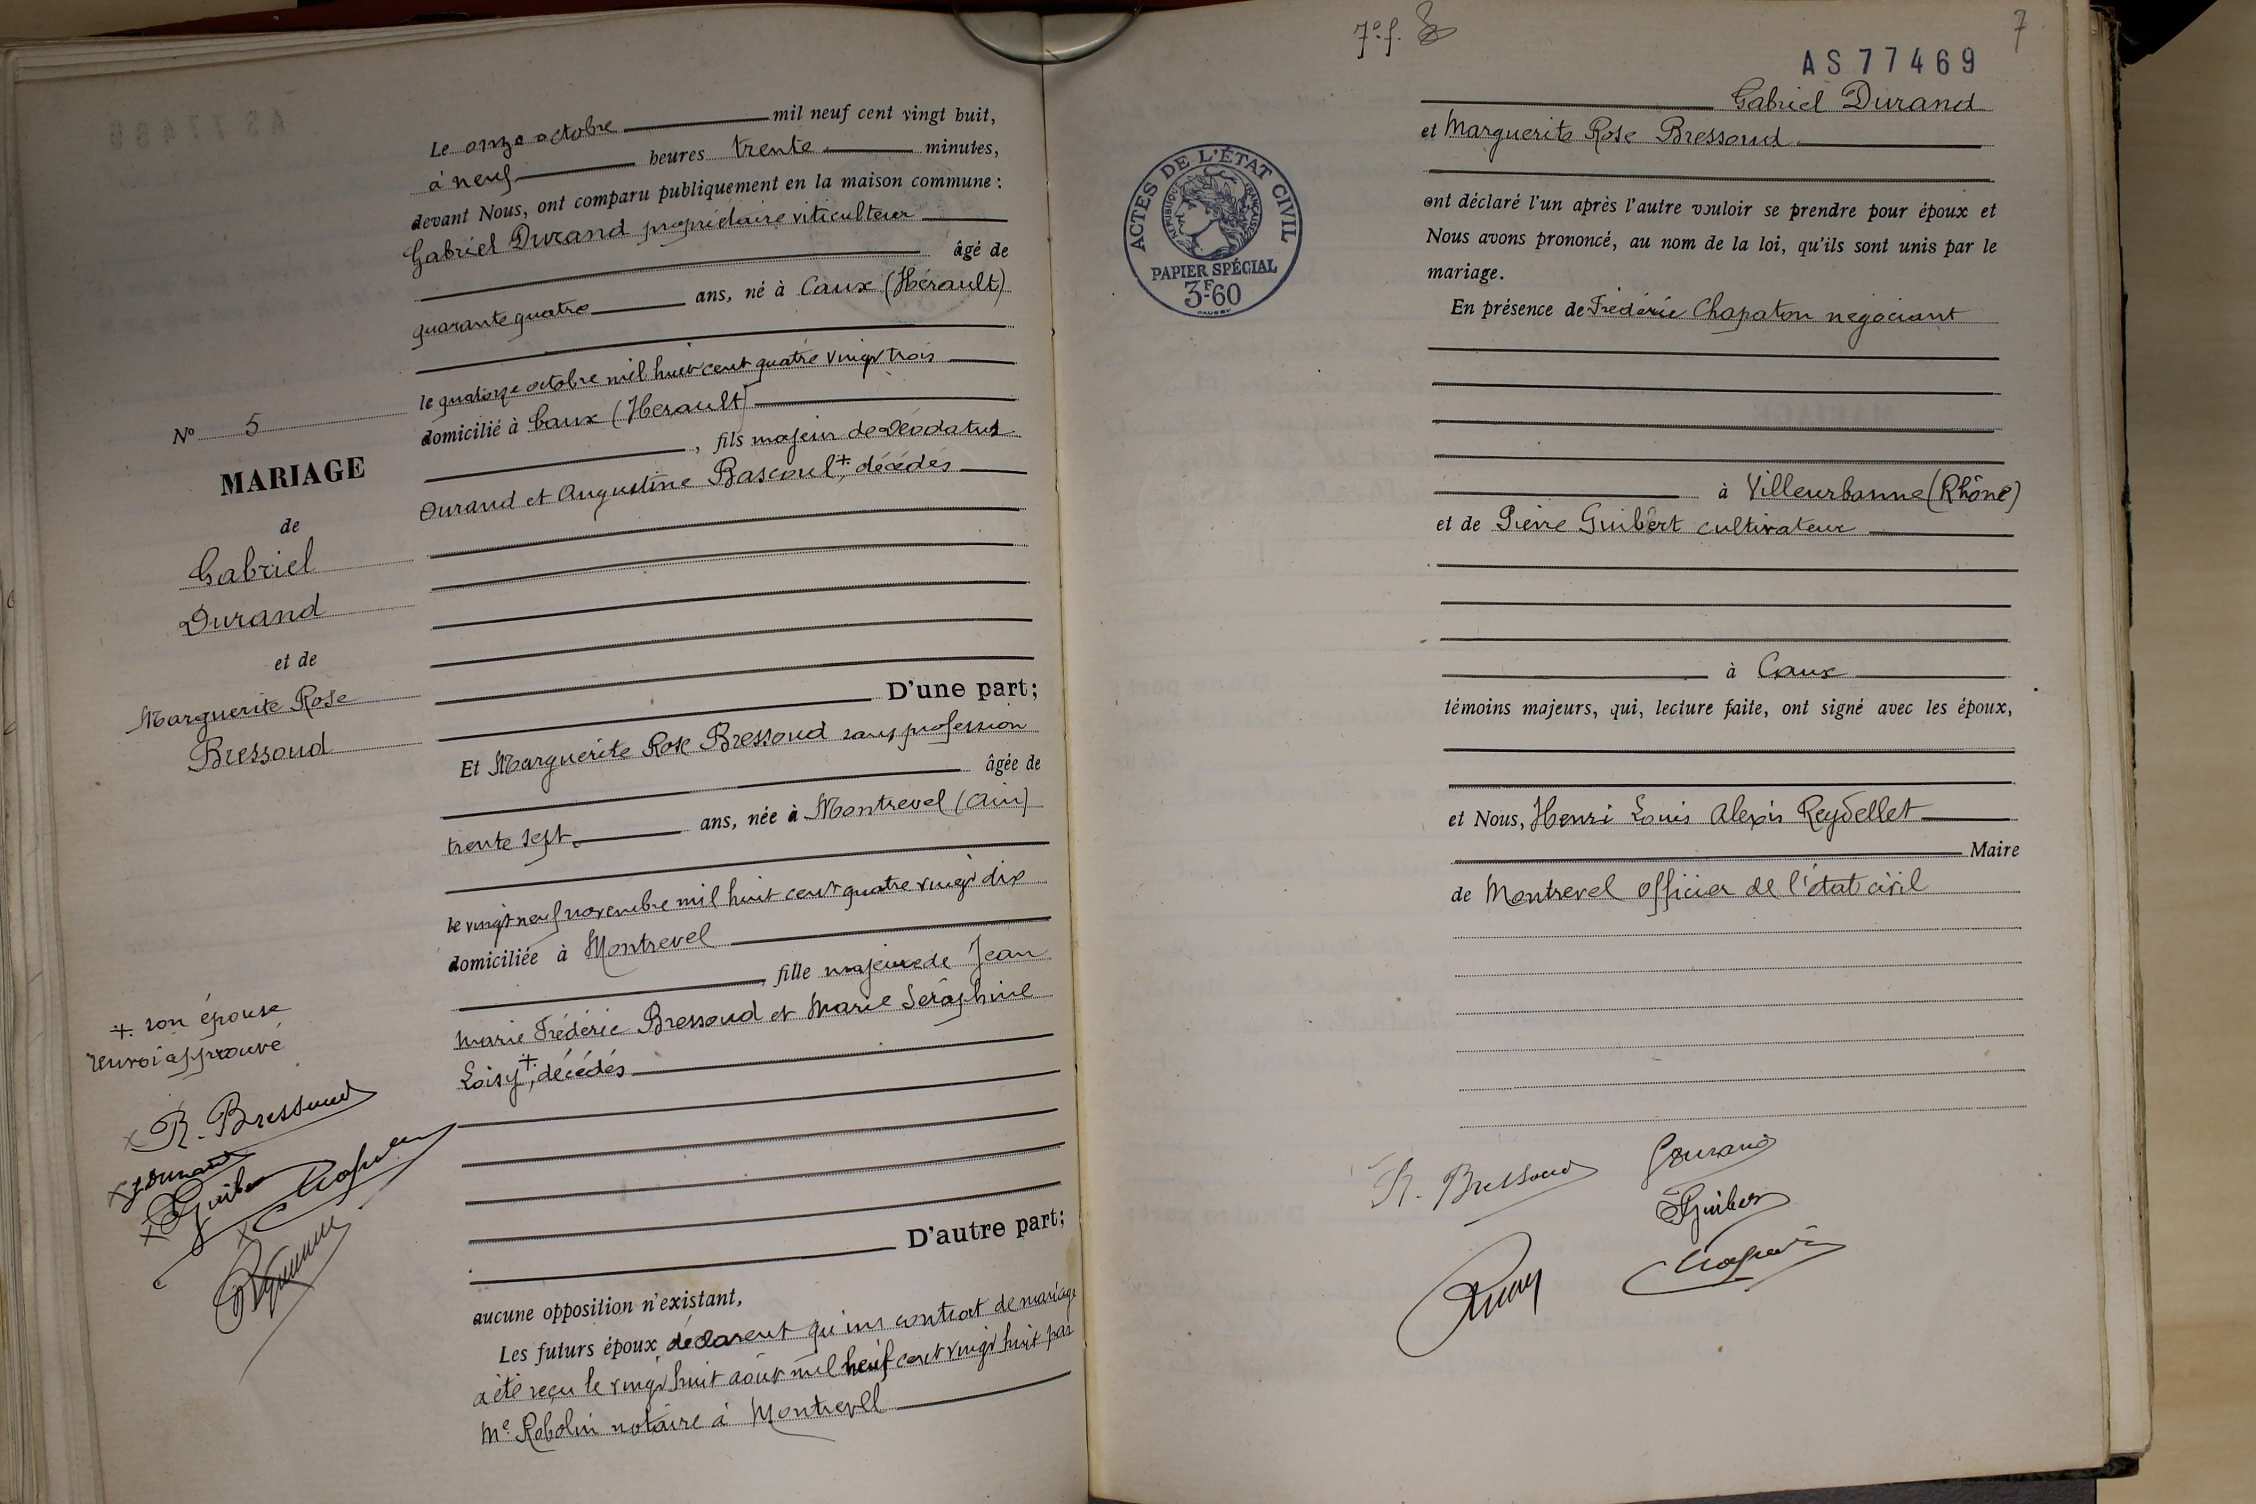 N° 5
MARIAGE
de
Gabriel
Durand
et de
Marguerite Rose
Bressoud
+. son épouse
renvoi approuvé
R. Bressoud
G Durand
Guibert
Le onze octobre mil neuf cent vingt huit,
à neuf heures trente minutes,
devant Nous, ont comparu publiquement en la maison commune :
Gabriel Durand propriétaire viticulteur
âgé de
quarante quatre ans, né à Caux (Hérault)
le quatorze octobre mil huit cent quatre vingt trois
domicilié à Caux (Herault)
, fils majeur de Déodatus
Durand et Augustine Bascoul +, décédés
D'une part;
Et Marguerite Rose Bressoud sans profession
âgée de
trente sept ans, née à Montrevel (Ain)
le vingt neuf novembre mil huit cent quatre vingt dix
domiciliée à Montrevel
, fille majeure de Jean
Marie Frédéric Bressoud et Marie Séraphine
Loisy +, décédés
D'autre part;
aucune opposition n'existant,
Les futurs époux déclarent qu'un contrat de mariage
a été reçu le vingt huit août mil neuf cent vingt huit par
Me Robolin notaire à Montrevel
7° f.
7
AS 77469
ACTES DE L'ÉTAT CIVIL
RÉPUBLIQUE FRANÇAISE
PAPIER SPÉCIAL
3F60
Gabriel Durand
et Marguerite Rose Bressoud
ont déclaré l'un après l'autre vouloir se prendre pour époux et
Nous avons prononcé, au nom de la loi, qu'ils sont unis par le
mariage.
En présence de Frédéric Chapaton négociant
à Villeurbanne (Rhône)
et de Pierre Guibert cultivateur
à Caux
témoins majeurs, qui, lecture faite, ont signé avec les époux,
et Nous, Henri Louis Alexis Reydellet
Maire
de Montrevel officier de l'état civil
R. Bressoud
G Durand
Guibert